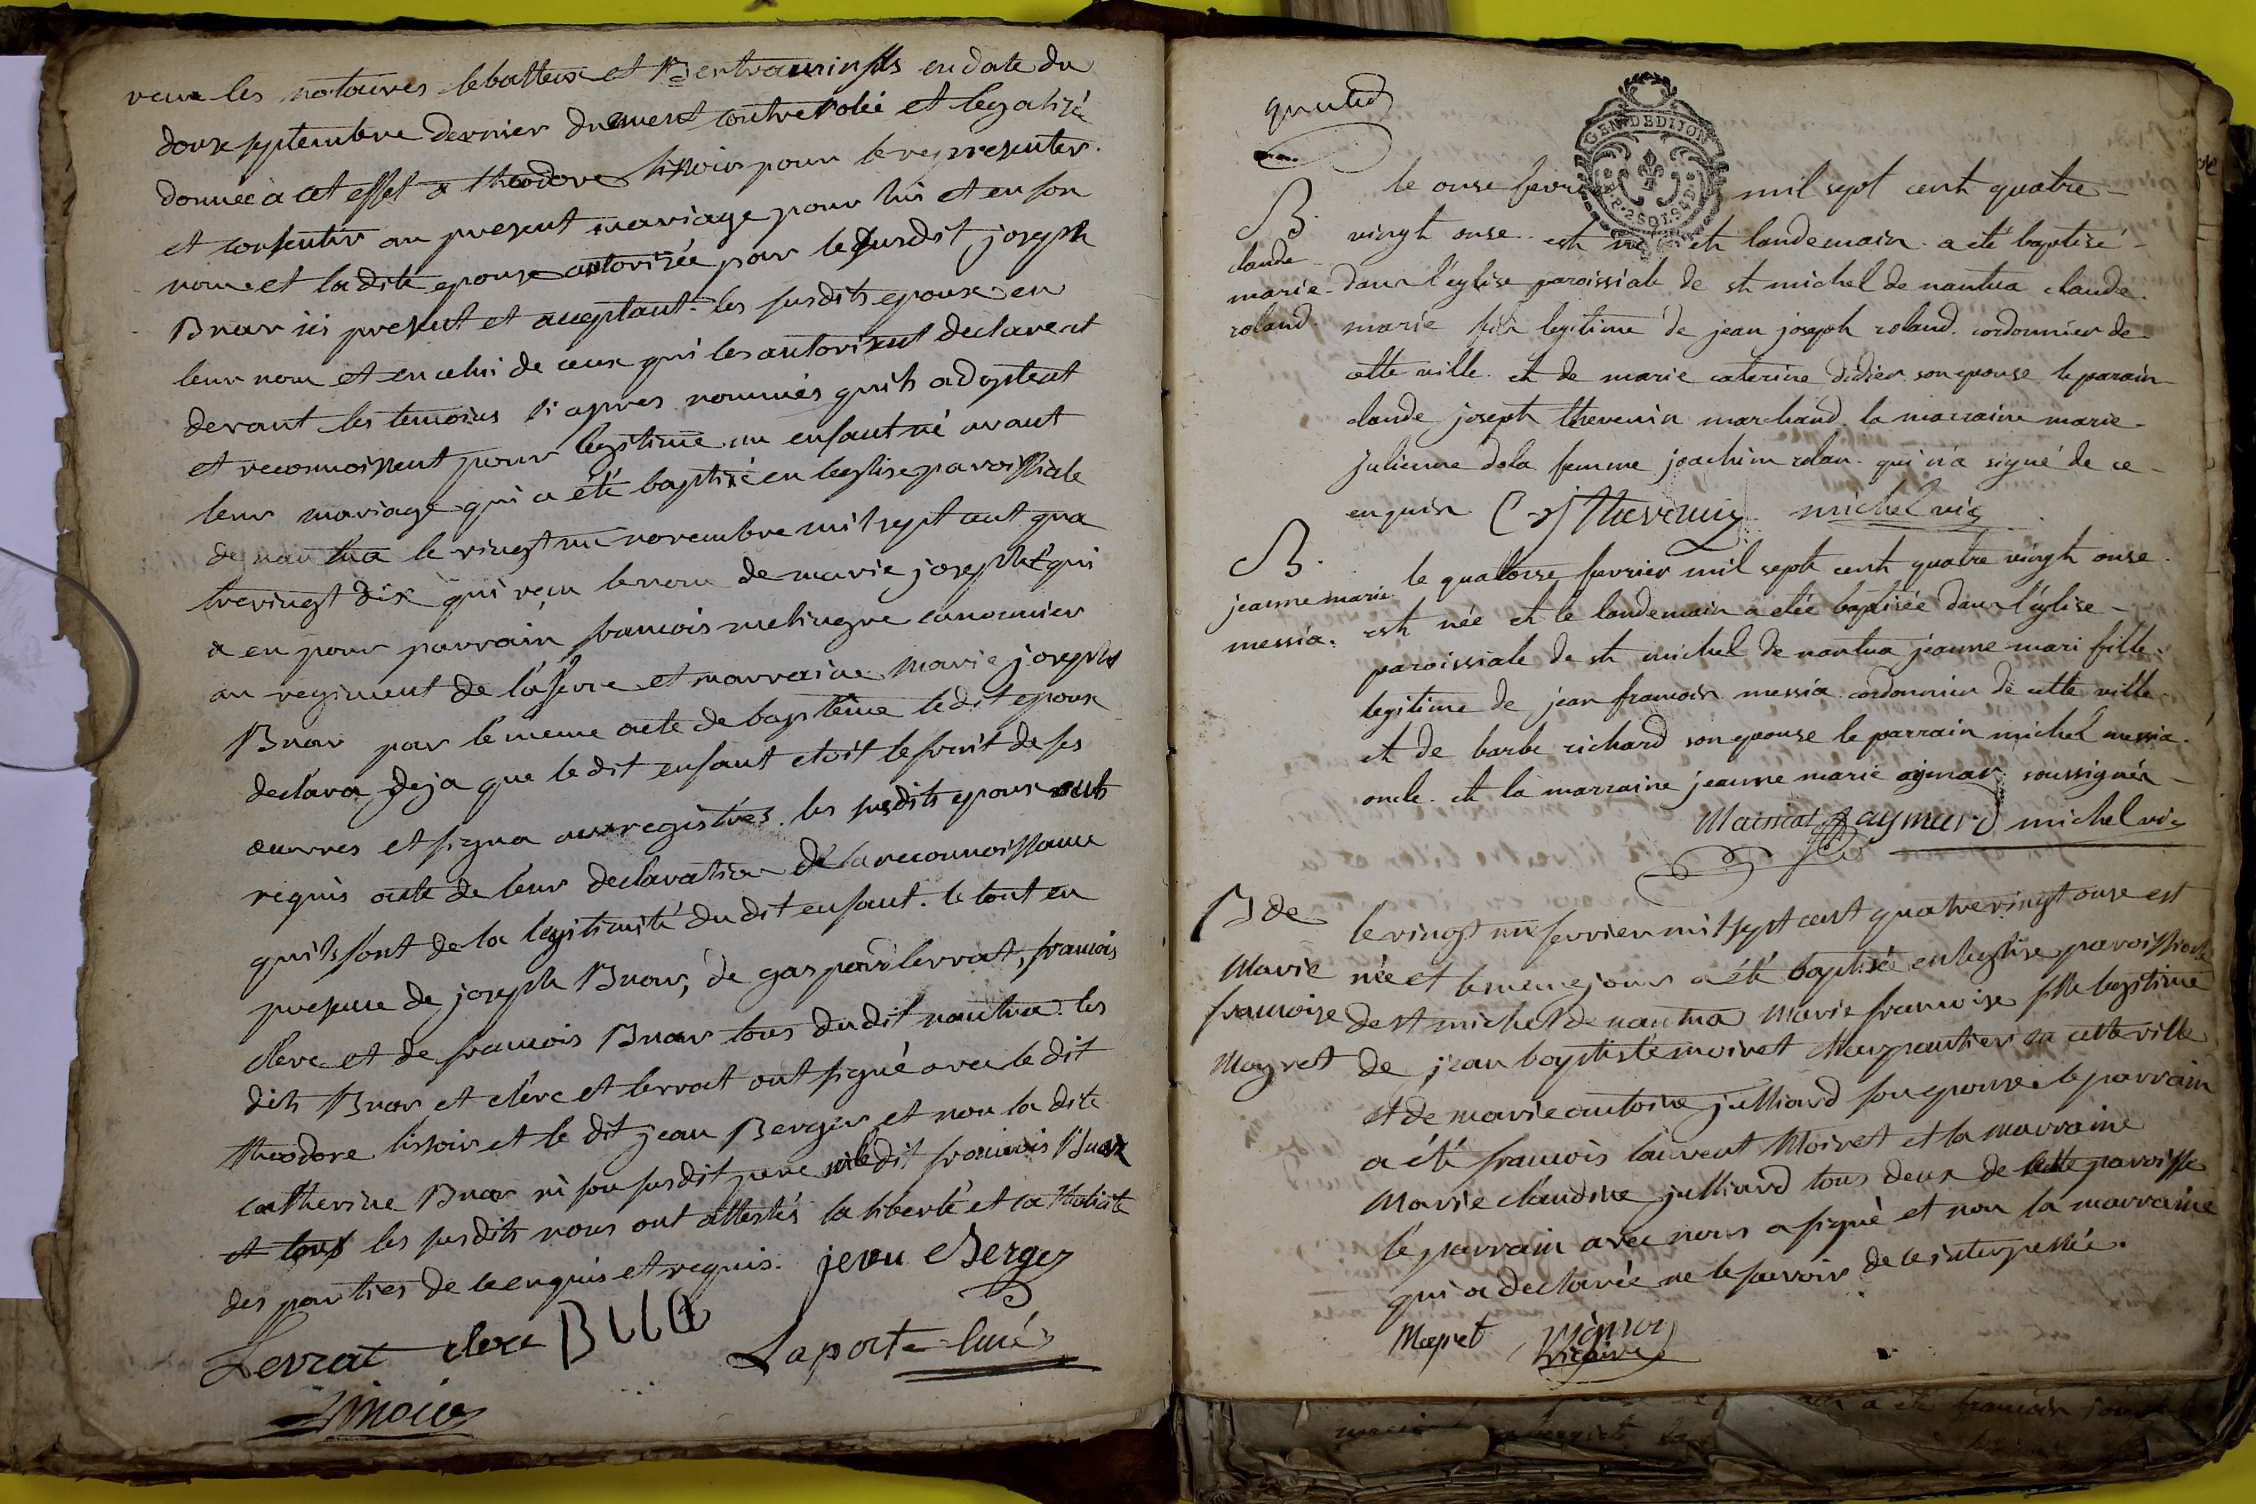 les notaires lebatteux et Bertrand fils en date du
douze septembre dernier duement controlée et legalisée
donnée a cet effet a theodore lissoir pour le representer
et consentir au present mariage pour lui et en son
nom et la dite epouse autorisée par le susdit joseph
Bruar ici present et acceptant. les susdits epoux en
leur nom et en celui de ceux qui les autorisent declarent
devant les temoins ci apres nommés quils adoptent
et reconnoissent pour legitime un enfant né avant
leur mariage qui a été baptisé en leglise paroissiale
de nantua le vingt un novembre mil sept cent qua
trevingt dix qui recu le nom de marie josephe qui
a eu pour parrain francois melingre canonnier
au regiment de la fere et marraine marie josephe
Bruar par le meme acte de bapteme le dit epoux
declara deja que le dit enfant etoit le fruit de ses
œuvres et signa aux registres. les susdits epoux ont
requis acte de leur declaration de la reconnoissance
quils font de la legitimité du dit enfant. le tout en
presence de joseph Bruar, de gaspard levrat, francois
clerc et de francois Bruar tous du dit nantua. les
dits Bruar et clerc et levrat ont signé avec le dit
theodore lissoir et le dit jean Berger et non la dite
catherine Bruar ni son susdit pere ni le dit francois Bruar
et tous les susdits nous ont attestés la liberté et catholicité
des parties de ce enquis et requis. jean Berger
Levrat clerc
Laporte curé
GEN. DE DIJON
le onse fevrier mil sept cent quatre
B.
vingt onse est né et landemain a eté baptisé
claude
marie
roland
dans l'eglise paroissiale de st michel de nantua claude
marie fils legitime de jean joseph roland cordonnier de
cette ville et de marie caterine didier son epouse le parain
claude joseph thevenin marchand la marraine marie
julienne dola femme joachim rolan qui n'a signé de ce
enquise C j Thevenin michel vic
B.
jeanne marie
messia.
le quatorse fevrier mil sept cent quatre vingt onse
est née et le landemain a etée baptisée dans l'église
paroissiale de st michel de nantua jeanne mari fille
legitime de jean francois messia cordonnier de cette ville
et de barbe richard son epouse le parrain michel messia
oncle et la marraine jeanne marie aymar soussignés
Maissiat aymard michel vic
B de
Marie
francoise
Moyret
le vingt un fevrier mil sept cent quatrevingt onse est
née et le meme jour a été baptisée en leglise paroissiale
de st michel de nantua Marie francoise fille legitime
de jean baptiste moiret charpentier en cette ville
et de marie antoine julliard son epouse le parrain
a été francois laurent Moiret et la marraine
Marie claudine julliard tous deux de cette paroisse
le parrain avec nous a signé et non la marraine
qui a declarée ne le savoir de ce interpellée.
vicaire